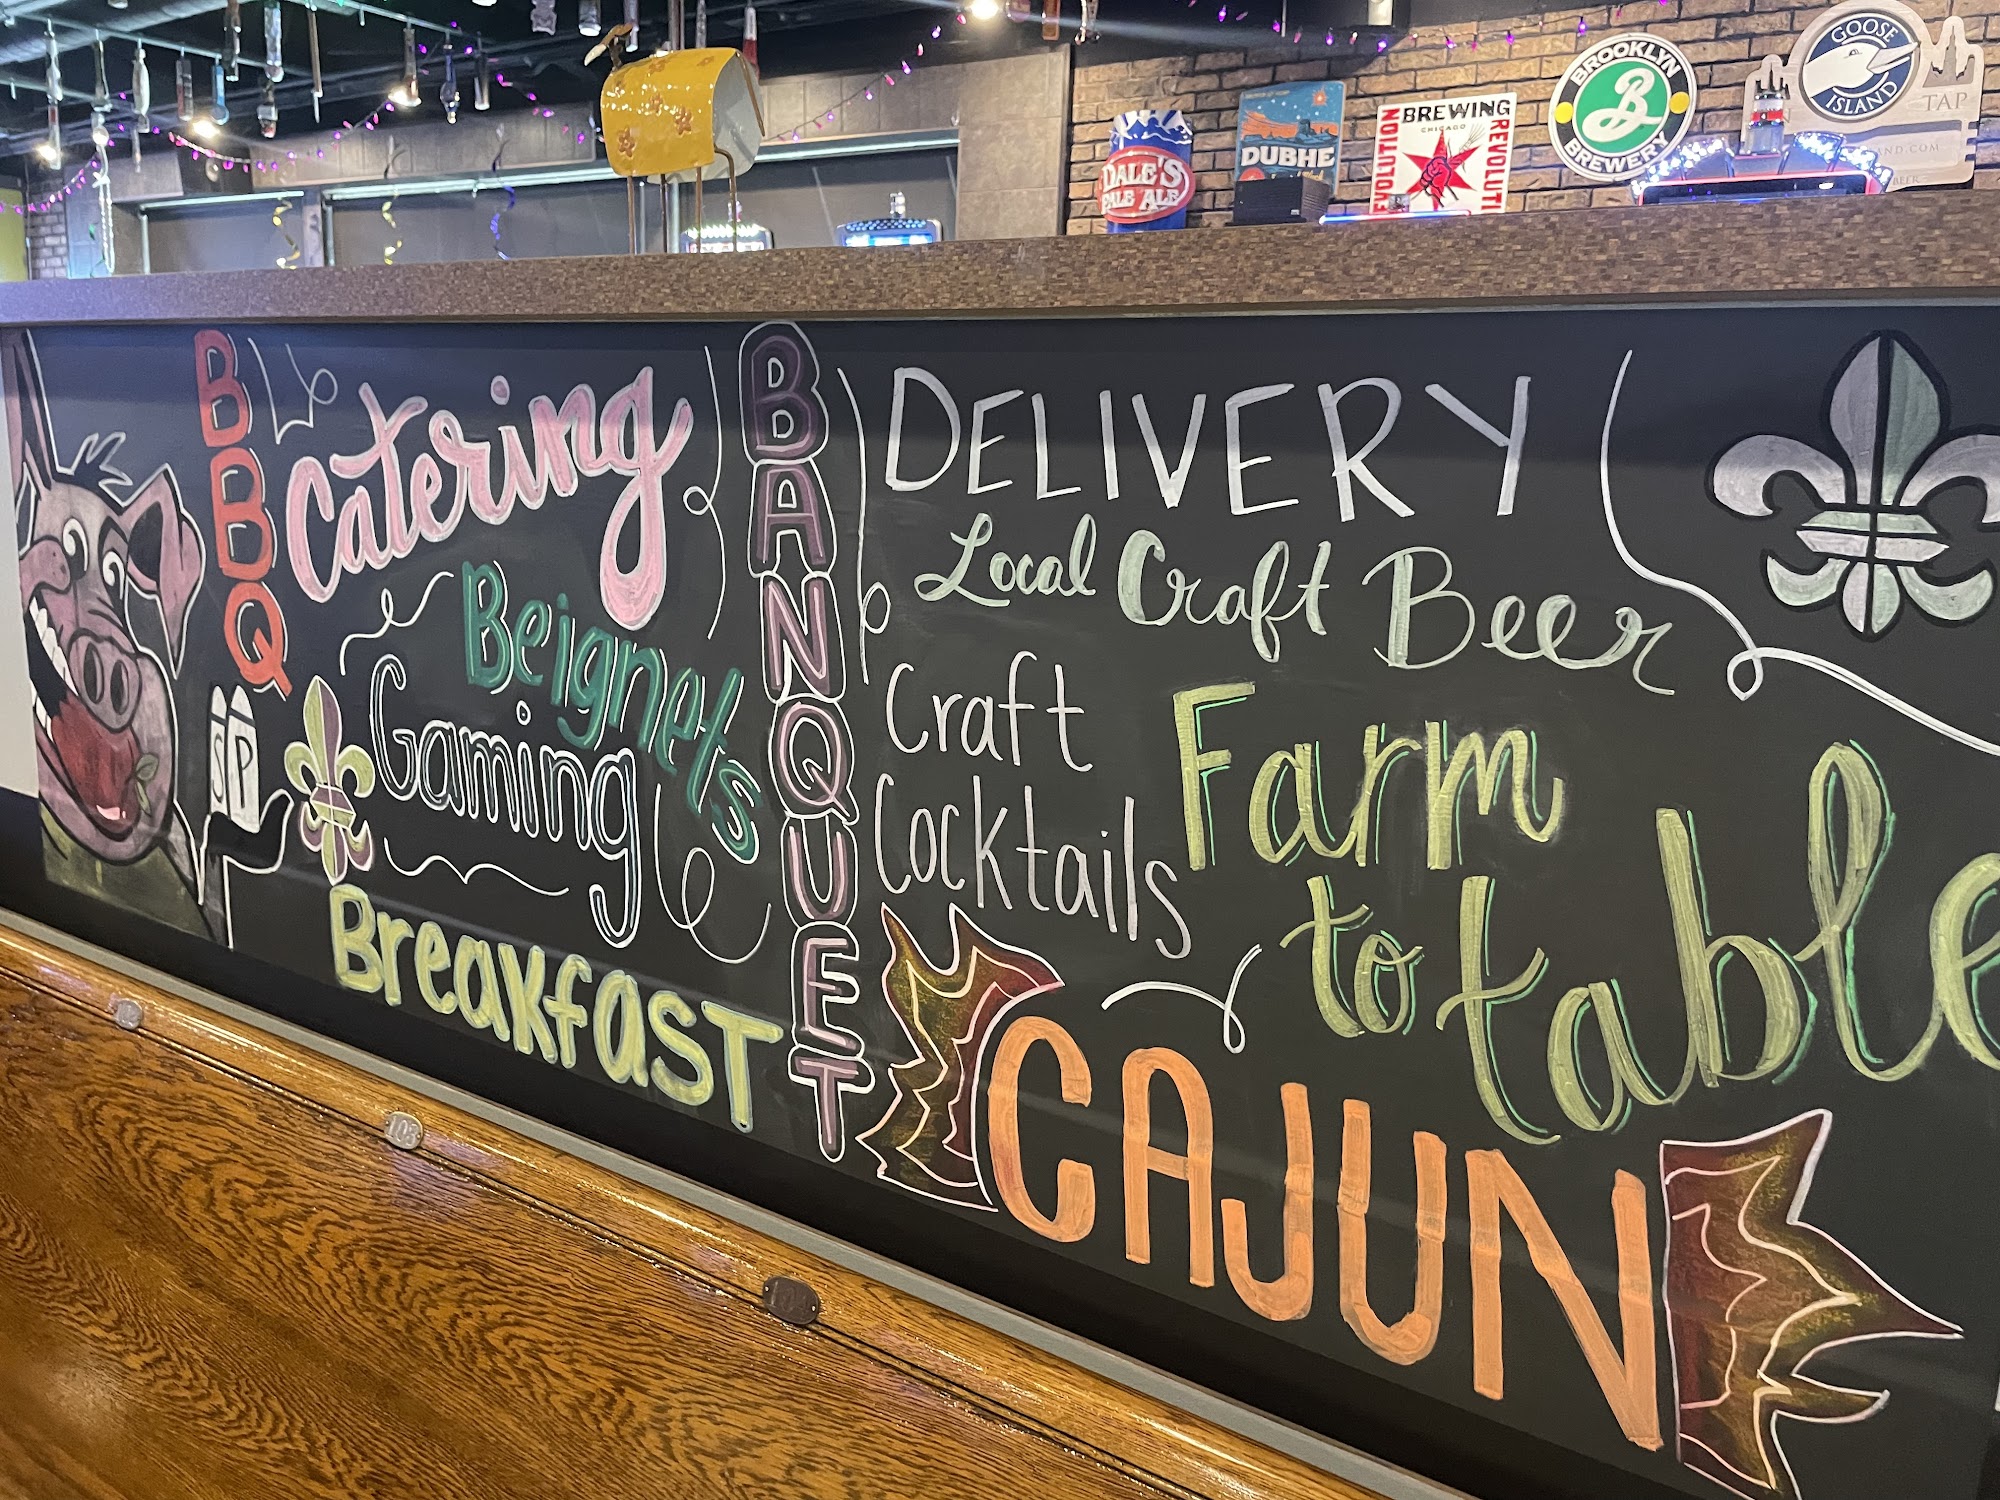 DALE'S
PALE ALE
DUBHE
REVOLUTION
BREWING
CHICAGO
REVOLUTI
BROOKLYN
B
BREWERY
GOOSE
ISLAND
TAP
BEER
BBQ
Catering
Beignets
Gaming
S P
Breakfast
BANQUET
DELIVERY
Local Craft Beer
Craft
Cocktails
Farm
to table
CAJUN
103
104